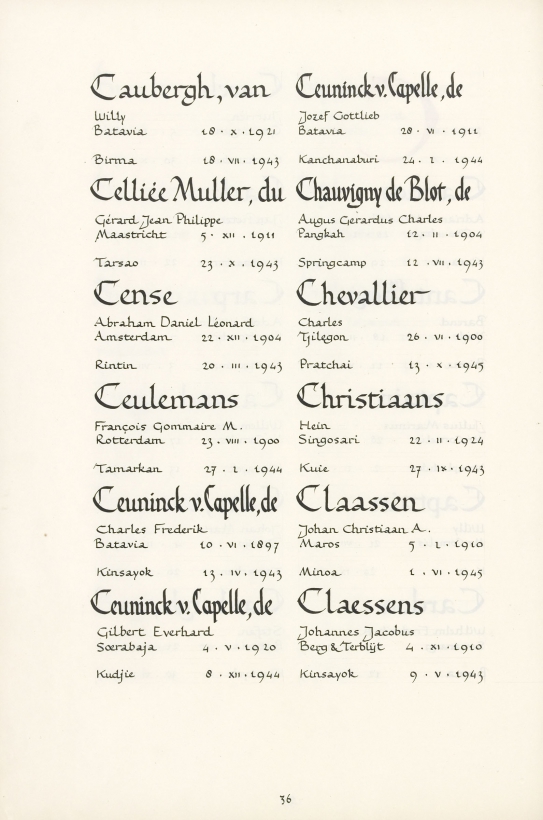 Caubergh, van
Willy
Batavia 18 · X · 1921
Birma 18 · VII · 1943
Celliée Muller, du
Gérard Jean Philippe
Maastricht 5 · XII · 1911
Tarsao 23 · X · 1943
Cense
Abraham Daniel Léonard
Amsterdam 22 · XII · 1904
Rintin 20 · III · 1943
Ceulemans
François Gommaire M.
Rotterdam 23 · VIII · 1900
Tamarkan 27 · I · 1944
Ceuninck v. Capelle, de
Charles Frederik
Batavia 10 · VI · 1897
Kinsayok 13 · IV · 1943
Ceuninck v. Capelle, de
Gilbert Everhard
Soerabaja 4 · V · 1920
Kudjie 8 · XII · 1944
Ceuninck v. Capelle, de
Jozef Gottlieb
Batavia 28 · VI · 1911
Kanchanaburi 24 · I · 1944
Chauvigny de Blot, de
Augus Gerardus Charles
Pangkah 12 · II · 1904
Springcamp 12 · VII · 1943
Chevallier
Charles
Tjilegon 26 · VI · 1900
Pratchai 13 · X · 1945
Christiaans
Hein
Singosari 22 · II · 1924
Kuie 27 · IX · 1943
Claassen
Johan Christiaan A.
Maros 5 · I · 1910
Minoa 1 · VI · 1945
Claessens
Johannes Jacobus
Berg & Terblijt 4 · XI · 1910
Kinsayok 9 · V · 1943
36